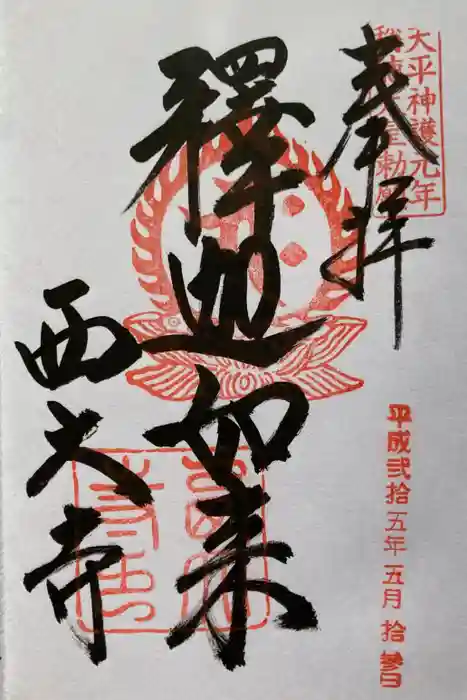 奉拝
大平神護元年
称徳天皇勅願
釋迦如来
西大寺
平成弐拾五年五月拾参日